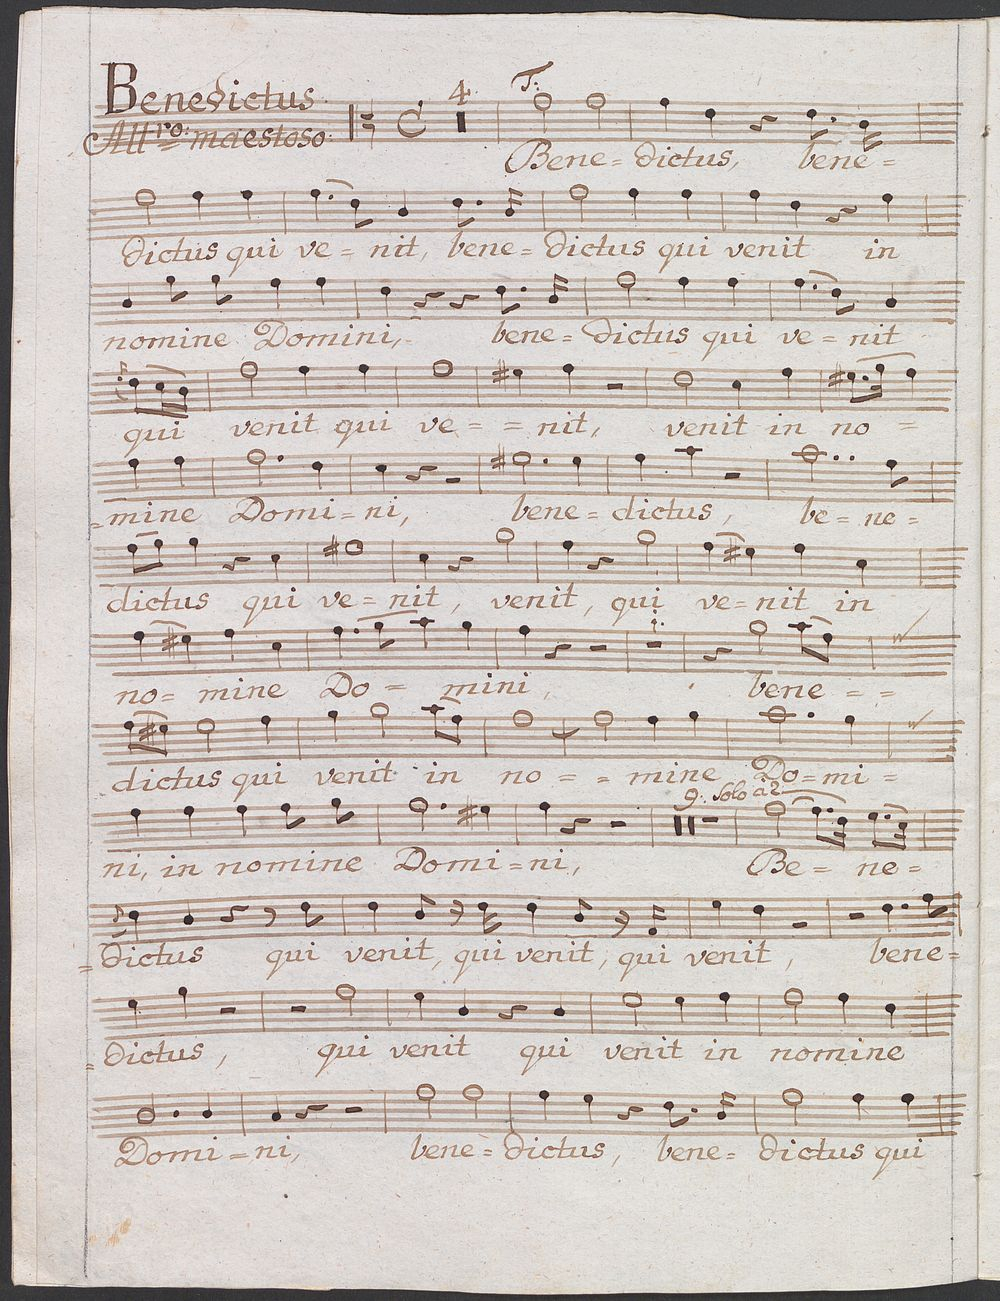 Benedictus
All.ro: maestoso.
4. T:
Bene= dictus, bene=
dictus qui ve= nit, bene= dictus qui venit in
nomine Domini, bene= dictus qui ve= nit
qui venit qui ve= = nit, venit in no =
=mine Domi=ni, bene= dictus, be= ne=
dictus qui ve= nit, venit, qui ve=nit in
no= mine Do= mini, bene = =
dictus qui venit in no= = mine Do=mi=
9. Solo à 2
ni, in nomine Domi=ni, Be= ne=
=dictus qui venit, qui venit, qui venit, bene=
=dictus, qui venit qui venit in nomine
Domi=ni, bene= dictus, bene= dictus qui